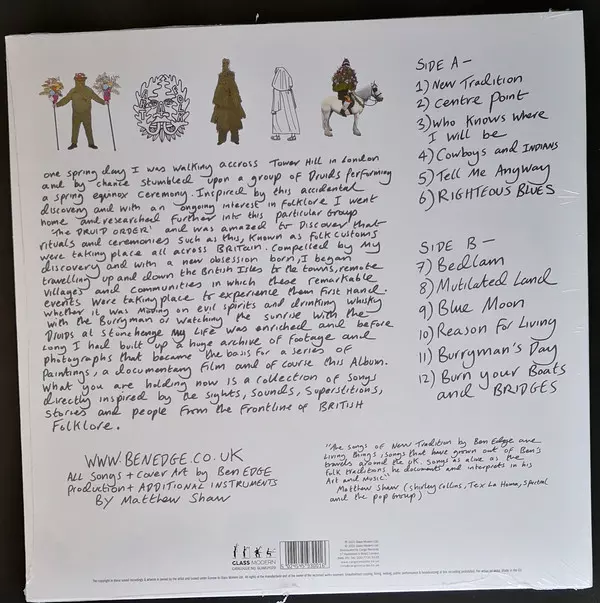 one spring day I was walking accross Tower Hill in London
and by chance stumbled upon a group of Druids performing
a spring equinox ceremony. Inspired by this accidental
discovery and with an ongoing interest in Folklore I went
home and researched further into this particular group
'The DRUID ORDER' and was amazed to Discover that
rituals and ceremonies such as this, known as folk customs
were taking place all across BRITAIN. Compelled by my
discovery and with a new obsession born, I began
travelling up and down the British Isles to the towns, remote
villages and communities in which these remarkable
events were taking place to experience them first hand.
Whether it was moving on evil spirits and drinking whisky
with the Burryman or watching the sunrise with the
Druids at Stonehenge my life was enriched and before
long I had built up a huge archive of footage and
photographs that became the basis for a series of
Paintings, a documentary Film and of course this Album.
What you are holding now is a collection of songs
directly inspired by the sights, Sounds, Superstitions,
Stories and people from the Frontline of BRITISH
Folklore.
WWW.BENEDGE.CO.UK
All Songs + Cover Art by Ben EDGE
Production + ADDITIONAL INSTRUMENTS
BY Matthew Shaw
SIDE A-
1) New Tradition
2) Centre Point
3) Who Knows Where
I will be
4) Cowboys and INDIANS
5) Tell Me Anyway
6) RIGHTEOUS BLUES
SIDE B-
7) Bedlam
8) Mutilated Land
9) Blue Moon
10) Reason For Living
11) Burryman's Day
12) Burn your Boats
and BRIDGES
"The songs of New Tradition by Ben Edge are
living things, songs that have grown out of Ben's
travels around the UK. Songs as alive as the
Folk traditions he documents and interprets in his
Art and Music"
Matthew Shaw (Shirley Collins, Tex La Homa,
and the pop Group)
CLASS MODERN